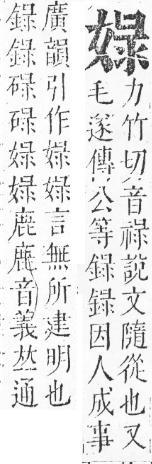 娽
力竹切音祿說文隨從也又
毛遂傳公等錄錄因人成事
廣韻引作娽娽言無所建明也
錄錄碌碌娽娽鹿鹿音義𠀤通